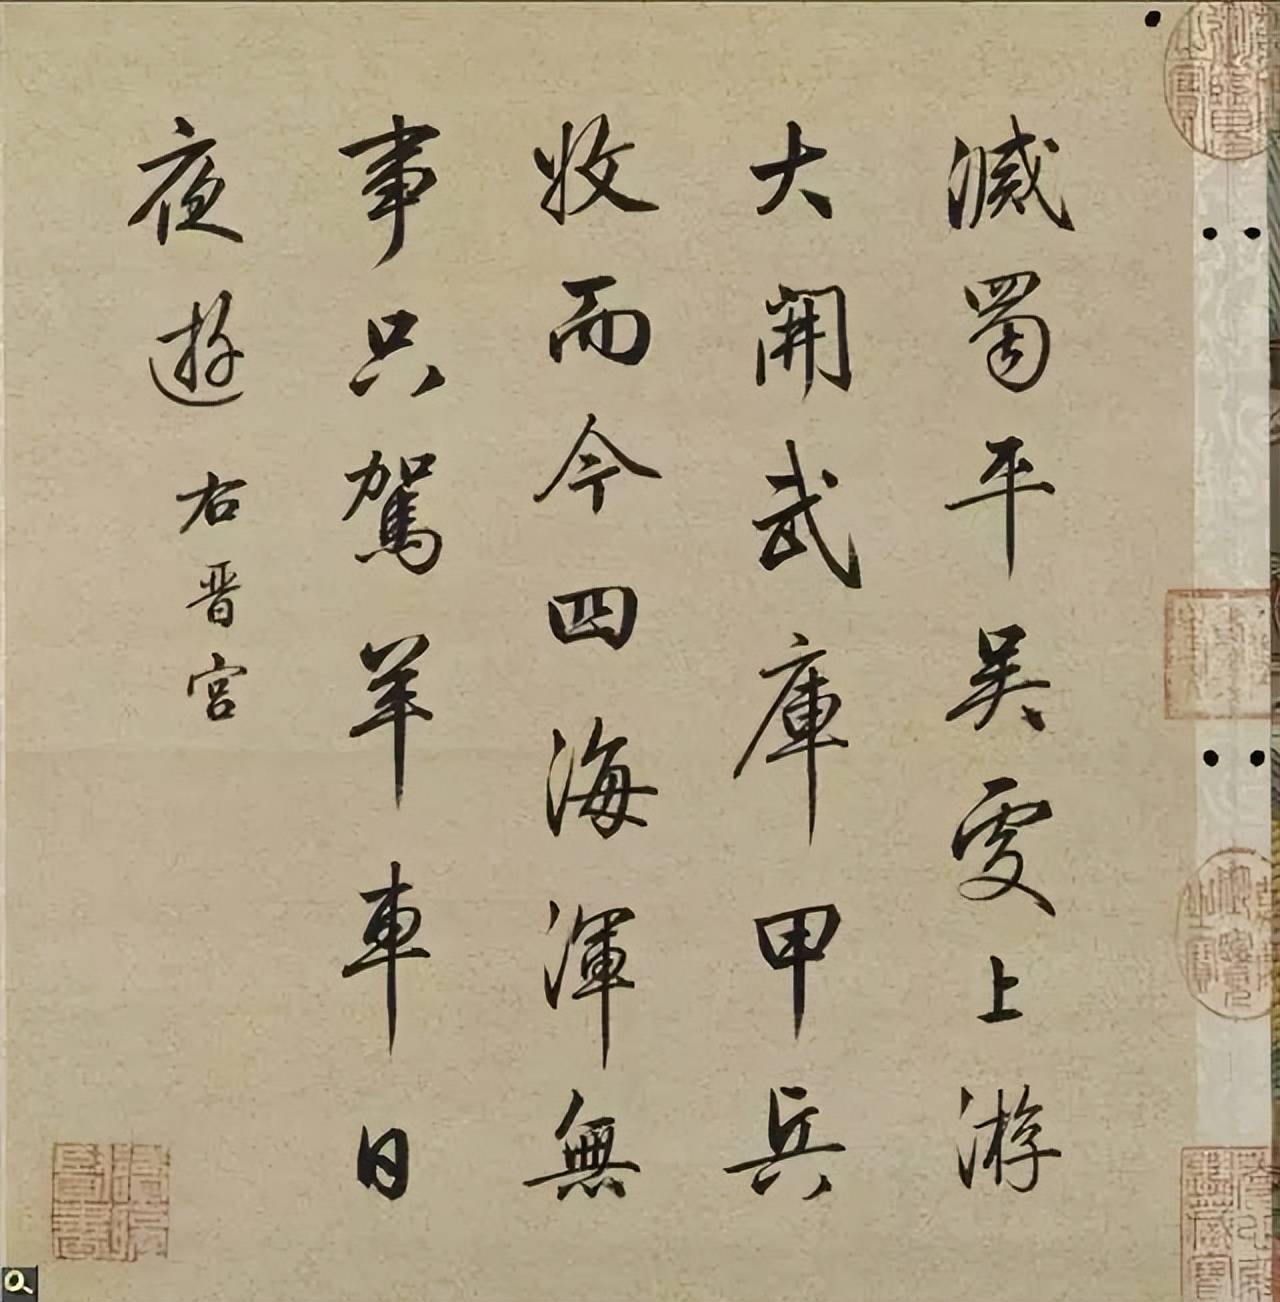 滅蜀平吳處上游
大開武庫甲兵
收而今四海渾無
事只駕羊車日
夜遊 右晉宮